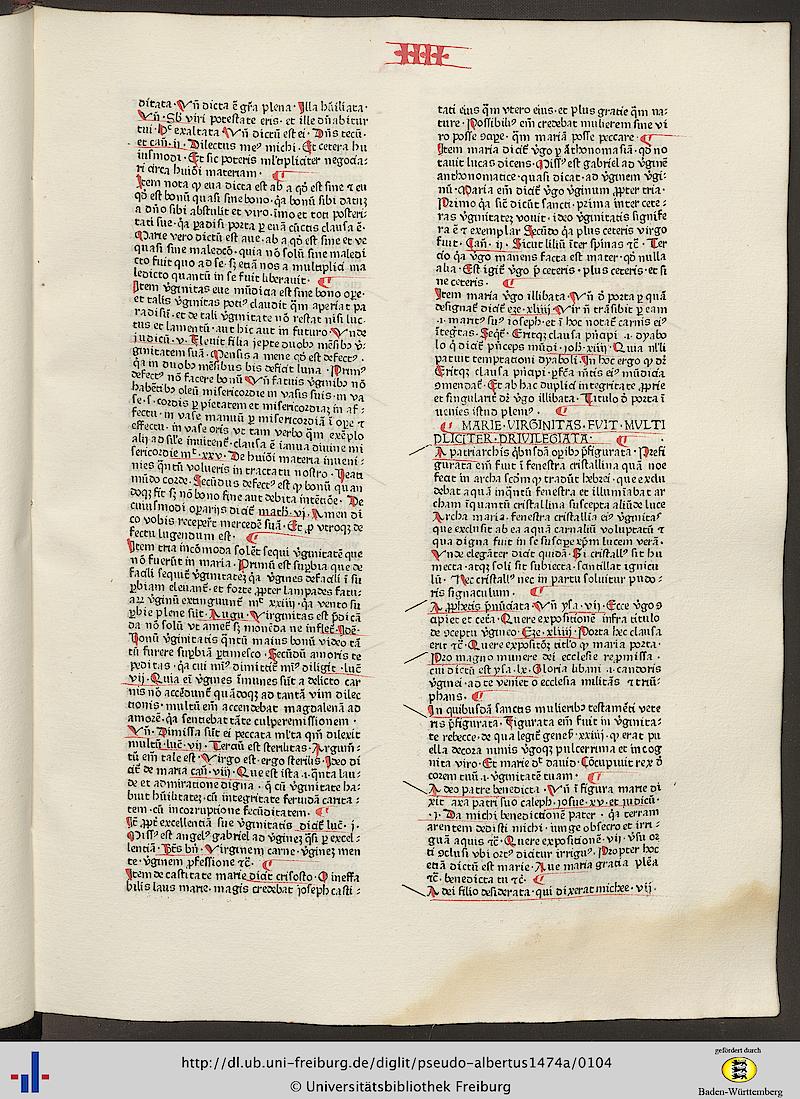 IIII
ditata. Vñ dicta ē gr̄a plena. Illa hūiliata.
Vñ. Sb viri potestate eris. et ille dn̄abitur
tui. Hᵉ exaltata Vñ dictū est ei. Dn̄s tecū.
et can̄. ij. Dilectus meꝰ michi. Et cetera hu
iusmodi. Et sic poteris ml̄tipliciter negocia-
ri circa huiōi materiam.
Item nota ꝙ eua dicta est ab a qđ est sine ⁊ eu
qđ est bonū quasi sine bono. q̄a bonū sibi datū
a dn̄o sibi abstulit et viro. īmo et toti posteri-
tati sue. q̄a padisi porta ꝑ euā cūctis clausa ē.
Marie vero dictū est aue. ab a qđ est sine et ve
quasi sine maledc̄o. quia nō solū sine maledi
cto fuit quo ad se. sꝫ etiā nos a multiplici ma
ledicto quantū in se fuit liberauit.
Item v̄ginitas eue mūdicia est sine bono oꝑe.
et talis v̄ginitas potiꝰ claudit q̄m aperiat pa
radisū. et de tali v̄ginitate nō restat nisi luc
tus et lamentū. aut hic aut in futuro. Vnde
judicū. v. Fleuit filia jepte duobꝰ mēsibꝰ v̄-
ginitatem suā. Mensis a mene qđ est defectꝰ.
q̄a in duobꝰ mēsibus bis deficit luna. Primꝰ
defectꝰ nō facere bonū Vñ fatuis v̄ginibꝰ nō
habētibꝰ oleū misericordie in vasis suis. in va
se. s. cordis ꝑ pietatem et misericordiaꝫ in af-
fectu. in vase manuū ꝑ misericordiā ī oꝑe ⁊
effectu. in vase oris vt tam verbo q̄m exēplo
alij ad sil̄e inuitenͭ. clausa ē ianua diuine mi
sericordie mͭ. xxv. De huiōi materia inueni-
nies q̄ntū volueris in tractatu nostro. Beati
mūdo corde. Secūdus defectꝰ est ꝙ bonū quan
doqꝫ fit sꝫ nō bono fine aut debita intēcōe. De
cuiusmodi oꝑarijs dicit math. vi. Amen di
co vobis receperͭ mercedē suā. Et ꝓ vtroqꝫ de
fectu lugendum est.
Item tria incōmoda solēt sequi v̄ginitatē que
nō fuerūt in maria. Primū est suꝑbia que de
facili sequiͭ v̄ginitatez q̄a v̄gines defacili ī su
ꝑbiam eleuanͭ. et forte ꝓpter lampades fatu-
aꝝ v̄ginū extinguunͭ mͭ xxiiij. q̄a vento su
ꝑbie plene sūt. Augu. Virginitas est p̄dicā
da nō solū vt ameͭ sꝫ monēda ne infleͭ. Idē.
Bonū v̄ginitatis q̄ntū maius bonū video tā
tū furere suꝑbiā ꝑtimesco. Secūdū amoris te
peditas. q̄a cui miꝰ dimittiͭ miꝰ diligit. luc̄
vij. Quia em̄ v̄gines īmunes sūt a delicto car
nis nō accedunͭ quādoqꝫ ad tantā vim dilec
tionis. multū em̄ accendebat magdalenā ad
amorē. q̄a sentiebat tāte culpe remissionem.
Vñ. Dimissa sūt ei peccata ml̄ta qm̄ dilexit
multū. luc̄. vij. Terciū est sterilitas. Argum̄-
tū em̄ tale est. Virgo est. ergo sterilis. Ideo di
citͭ de maria can̄. viij. Que est ista. i. q̄nta lau-
de et admiratione digna. q̄ cū v̄ginitate ha-
buit hūilitateꝫ. cū integritate feruidā carita-
tem. cū incorruptione fecūditatem.
Itē. ꝓpt̄ excellentiā sue v̄ginitatis dicitͭ luc̄. j.
Missꝰ est angelꝰ gabriel ad v̄gineꝫ q̄si ꝑ excel-
lentiā. Bēs bñ. Virginem carne. v̄gineꝫ men
te. v̄ginem ꝓfessione ⁊c̄.
Item de castitate marie dicit crisosto. O ineffa
bilis laus marie. magis credebat ioseph casti-
tati eius q̄m vtero eius. et plus gratie q̄m na-
ture. Possibiliꝰ em̄ credebat mulierem sine vi
ro posse ꝯcipe. q̄m mariā posse peccare.
Item maria diciͭ v̄go ꝑ āthonomasiā. qđ no
tauit lucas dicens. Missꝰ est gabriel ad v̄ginē
anthonomatice. quasi dicat. ad v̄ginem v̄gi-
nū. Maria em̄ diciͭ v̄go v̄ginum ꝓpter tria.
Primo q̄a sic̄ dicūt sancti. prima inter cete-
ras v̄ginitateꝫ vouit. ideo v̄ginitatis signife
ra ē ⁊ exemplar Secūdo q̄a plus ceteris virgo
fuit. Can̄. ij. Sicut liliū īter spinas ⁊c̄. Ter
cio q̄a v̄go manens facta est mater. qđ nulla
alia. Est igiͭ v̄go p̄ ceteris. plus ceteris. et si
ne ceteris.
Item maria v̄go illibata. Vñ ō porta ꝑ quā
designaͭ diciͭ eze. xliiij. Vir nō trāsibit ꝑ eam
.i. maritꝰ suꝰ ioseph. et ī hoc notaͭ carnis eiꝰ
ītegritas. Seqͭ. Eritqꝫ clausa pn̄cipi .i. dyabo
lo q̄ diciͭ pn̄ceps mūdi. joh̄. xiiij. Quia nl̄li
patuit temptationi dyaboli. In hoc ergo ꝙ dꝛ
Eritqꝫ clausa pn̄cipi. ꝑfc̄a mītis eiꝰ mūdicia
ꝯmendaͭ. Et ab hac duplici integritate ꝓprie
et singulariͭ dꝛ v̄go illibata. Titulo ō porta ī
uenies istud pleniꝰ.
MARIE. VIRGINITAS. FVIT. MVLTI
PLICITER. PRIVILEGIATA.
A patriarchis q̄busdā oꝑibꝰ p̄figurata. Prefi
gurata em̄ fuit ī fenestra cristallina quā noe
fecit in archa scd̄m ꝙ tradūt hebrei. que exclu
debat aquā inq̄ntū fenestra et illumīabat ar
cham īquantū cristallina suscepta aliūde luce
Archa maria. fenestra cristallīa eiꝰ v̄ginitas
que exclusit ab ea aquā carnaliū voluptatū ⁊
qua digna fuit in se suscipe xp̄m lucem verā.
Vnde elegāter dicit quidā. Si cristallꝰ sit hu
mecta. atqꝫ soli sit subiecta. scintillat ignicu
lū. Nec cristallꝰ nec in partu soluitur pudo-
ris signaculum.
A ꝓphetis p̄nūciata. Vñ ysa. vij. Ecce v̄go ꝯ
cipiet et cetā. Quere expositionē infra titulo
de ꝯceptu v̄gineo. Eze. xliiij. Porta hec clausa
erit ⁊c̄. Quere expositōꝫ titl̄o ꝙ maria porta.
Pro magno munere dei ecclesie reꝓmissa.
cui dictū est ysa. lx. Gloria libani .i. candoris
v̄ginei. ad te veniet o ecclesia militās ⁊ triū-
phans.
In quibusdā sanctis mulieribꝰ testamēti vete
ris p̄figurata. Figurata em̄ fuit in v̄ginita-
te rebecce. de qua legiͭ gene. xxiiij. ꝙ erat pu
ella decora nimis v̄goqꝫ pulcerrima et incog
nita viro. Et marie dꝛ dauid. Cōcupiuit rex d
corem tuū .i. v̄ginitatē tuam.
A deo patre benedicta. Vñ ī figura marie di
xit axa patri suo caleph. josue. xv. et judicū.
.j. Da michi benedictionē pater. q̄a terram
arentem dedisti michi. iunge obsecro et irri-
guā aquis ⁊c̄. Quere expositionē. vij. v̄su or
ti ꝯclusi vbi ortꝰ dicitur irriguꝰ. Propter hoc
etiā dictū est marie. Aue maria gratia plēa
⁊c̄. benedicta tu ⁊c̄.
A dei filio desiderata. qui dixerat michee. vij.
http://dl.ub.uni-freiburg.de/diglit/pseudo-albertus1474a/0104
© Universitätsbibliothek Freiburg
gefördert durch
Baden-Württemberg